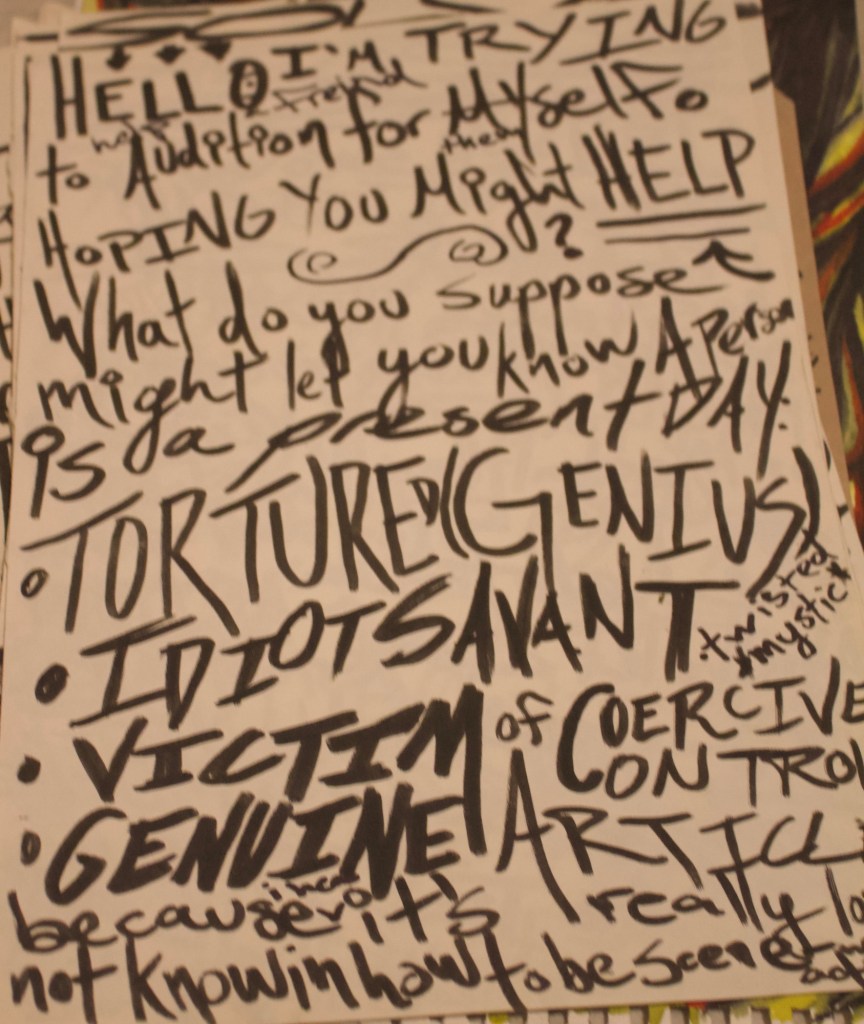 HELLO I'M TRYING
freind
to Audition for Myself.
then
HOPING YOU Might HELP
?
What do you suppose
might let you know A Person
is a present DAY.
• TORTURED (GENIUS)
• IDIOT SAVANT
• twisted
mystic*
• VICTIM of COERCIVE
CONTROL
• GENUINE ARTICL
because it's really lo
not knowin how to be scene